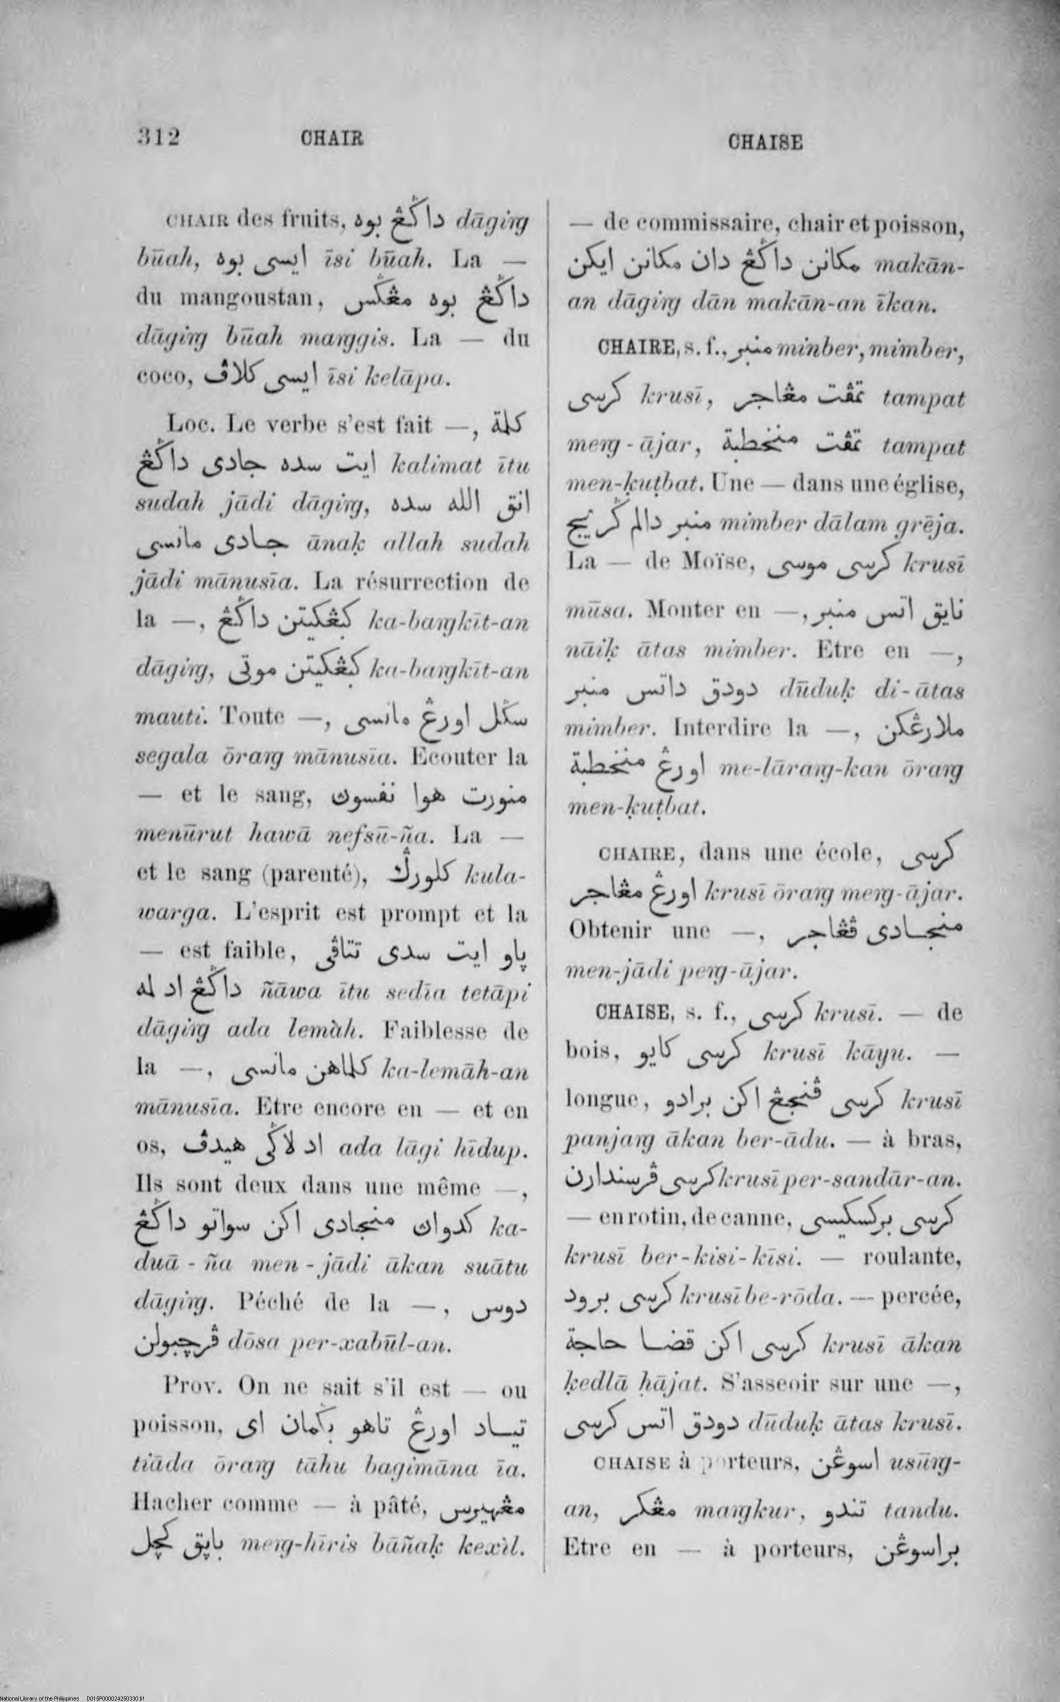 312
CHAIR
CHAISE
CHAIR des fruits, داڬيڠ بوه dāgiņg
būah, ايسى بوه īsi būah. La —
du mangoustan, داڬيڠ بوه مڠڬس
dāgiņg būah maņggis. La — du
coco, ايسى كلاڤ īsi kelāpa.
Loc. Le verbe s'est fait —, كلمة
ايت سده جادى داڬيڠ kalimat ītu
sudah jādi dāgiņg, انق الله سده
جادى مانسى ānaḳ allah sudah
jādi mānusīa. La résurrection de
la —, كبڠكيتن داڬيڠ ka-baņgkīt-an
dāgiņg, كبڠكيتن موتى ka-baņgkīt-an
mauti. Toute —, سڬل اورڠ مانسى
segala ōraņg mānusīa. Ecouter la
— et le sang, منورت هوا نفسوڽ
menūrut hawā nefsū-ña. La —
et le sang (parenté), كلورڬ kula-
warga. L'esprit est prompt et la
— est faible, ڽاو ايت سدى تتاڤى
داڬيڠ اد لمه ñāwa ītu sedīa tetāpi
dāgiņg ada lemàh. Faiblesse de
la —, كلماهن مانسى ka-lemāh-an
mānusīa. Etre encore en — et en
os, اد لاڬى هيدڤ ada lāgi hīdup.
Ils sont deux dans une même —,
كدواڽ منجادى اكن سواتو داڬيڠ ka-
duā-ña men-jādi ākan suātu
dāgiņg. Péché de la —, دوس
ڤرچبولن dōsa per-xabūl-an.
Prov. On ne sait s'il est — ou
poisson, تيـاد اورڠ تاهو بڬمان اى
tiāda ōraņg tāhu bagimāna īa.
Hacher comme — à pâté, مڠهيرس
باڽق كچل meņg-hīris bāñaḳ kexìl.
— de commissaire, chair et poisson,
مكانن داڬيڠ دان مكانن ايكن makān-
an dāgiņg dān makān-an īkan.
CHAIRE, s. f., منبر minber, mimber,
كرسى krusī, تمڤت مڠاجر tampat
meņg-ājar, تمڤت منخطبة tampat
men-ḳuṭbat. Une — dans une église,
منبر دالم ڬريج mimber dālam grēja.
La — de Moïse, كرسى موسى krusī
mūsa. Monter en —, نايق اتس منبر
nāiḳ ātas mimber. Etre en —,
دودق داتس منبر dūduḳ di-ātas
mimber. Interdire la —, ملارڠكن
اورڠ منخطبة me-lāraņg-kan ōraņg
men-ḳuṭbat.
CHAIRE, dans une école, كرسى
اورڠ مڠاجر krusī ōraņg meņg-ājar.
Obtenir une —, منجـادى ڤڠاجر
men-jādi peņg-ājar.
CHAISE, s. f., كرسى krusī. — de
bois, كرسى كايو krusī kāyu. —
longue, كرسى ڤنجڠ اكن برادو krusī
panjaņg ākan ber-ādu. — à bras,
كرسى ڤرسندارن krusī per-sandār-an.
— en rotin, de canne, كرسى بركسكيسى
krusī ber-kisi-kīsi. — roulante,
كرسى برود krusī be-rōda. — percée,
كرسى اكن قضـا حاجة krusī ākan
ḳedlā ḥājat. S'asseoir sur une —,
دودق اتس كرسى dūduḳ ātas krusī.
CHAISE à porteurs, اسوڠن usūņg-
an, مڠكر maņgkur, تندو tandu.
Etre en — à porteurs, براسوڠن
National Library of the Philippines